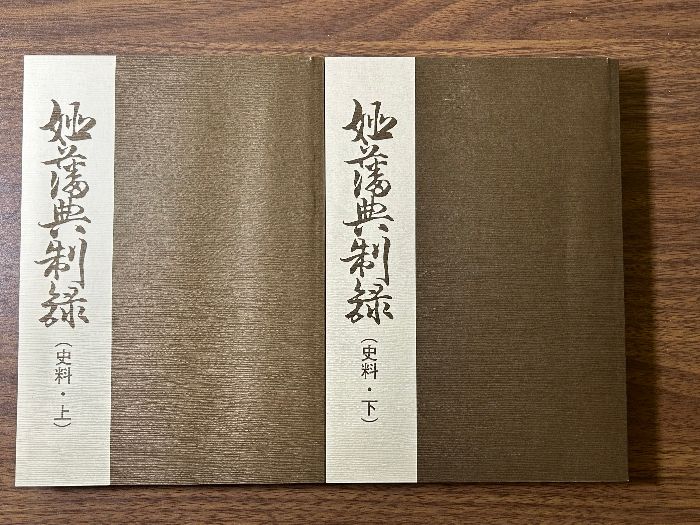 姫藩典制録
(史料・上)
姫藩典制録
(史料・下)